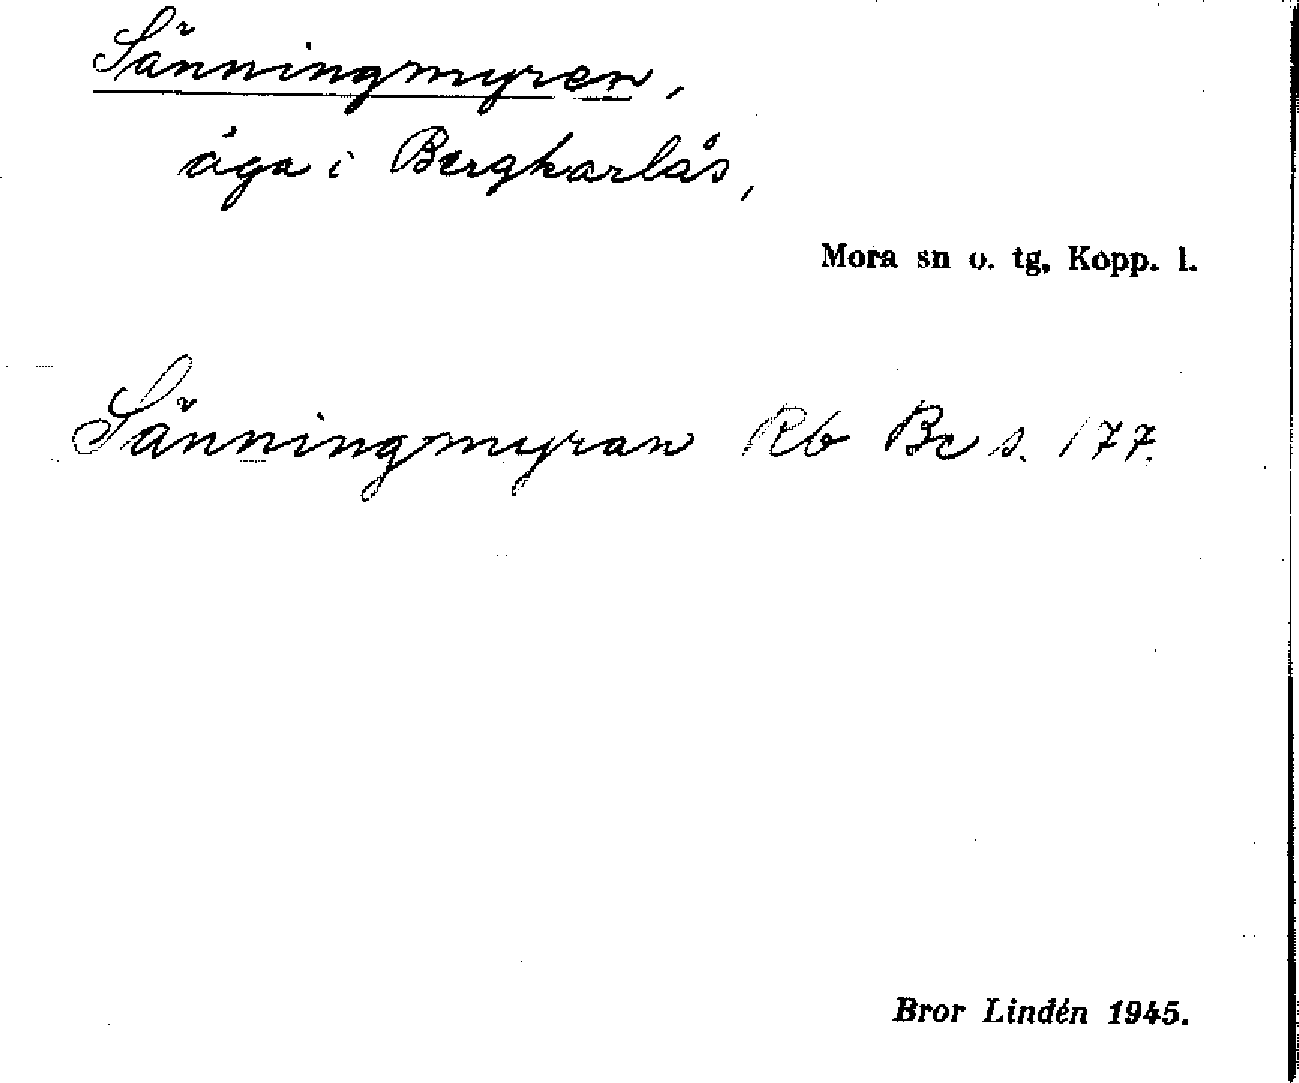 Sänningmyren,
äga i Bergkarlås,
Mora sn o. tg, Kopp. l.
Sänningmyran Rb Bc s. 177.
Bror Lindén 1945.